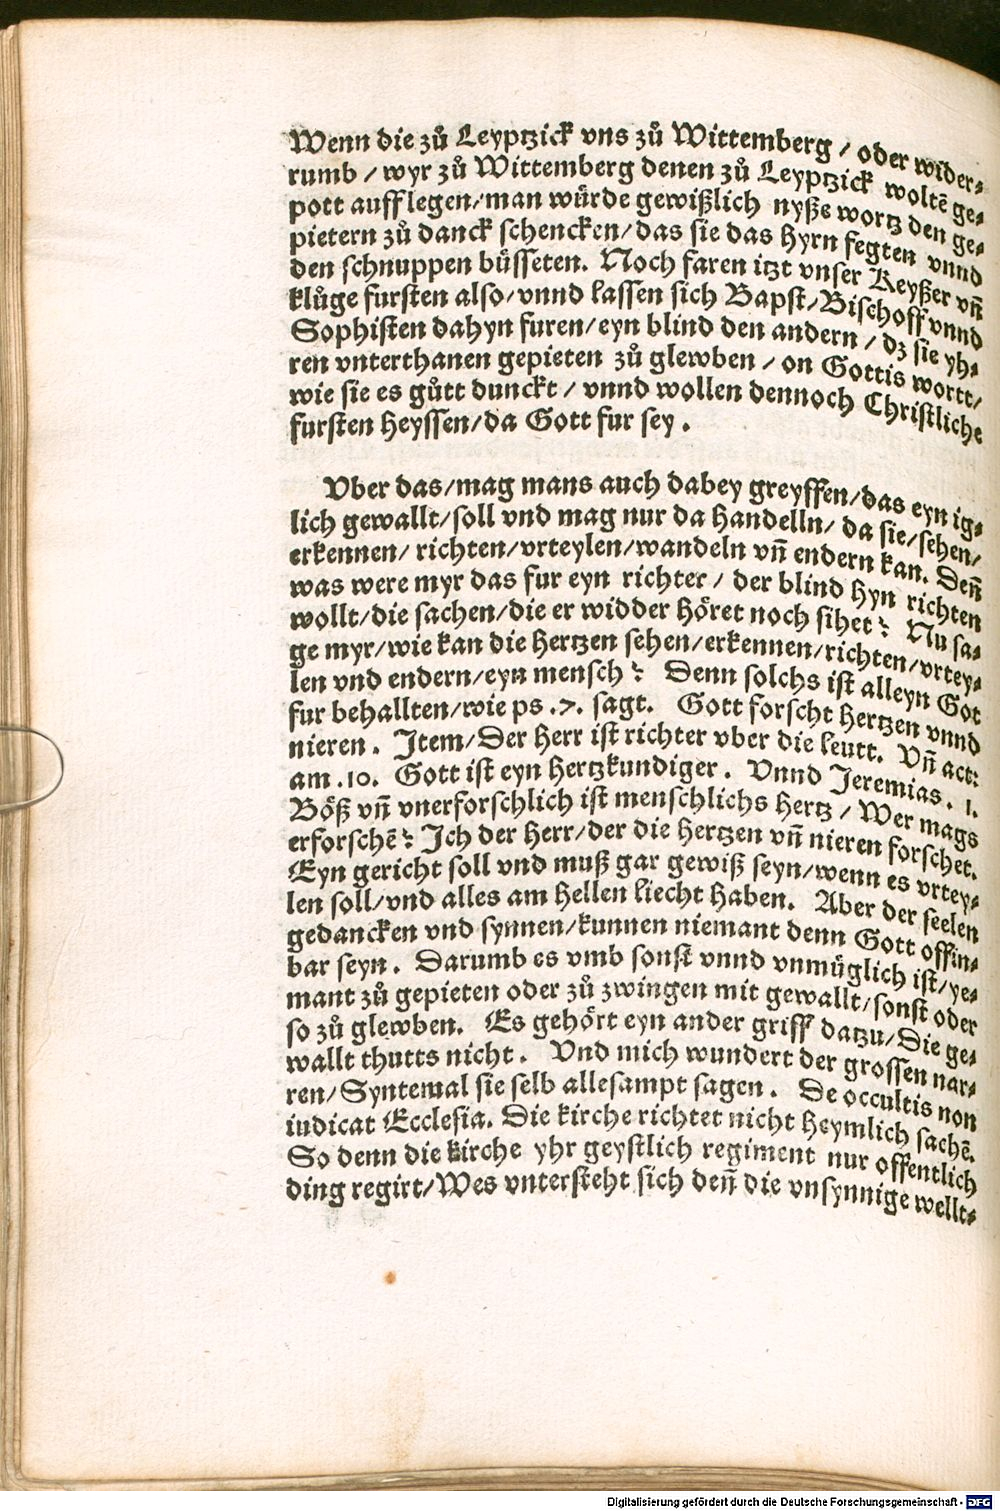 Wenn die zů Leyptzick vns zů Wittemberg / oder wider⸗
rumb / wyr zů Wittemberg denen zů Leyptzick woltē ge⸗
pott aufflegen/man würde gewißlich nyße wortz den ge⸗
pietern zů danck schencken/das sie das hyrn fegten vnnd
den schnuppen büsseten. Noch faren itzt vnser Keyßer vn̄
klůge fursten also/vnnd lassen sich Bapst/Bischoff vnnd
Sophisten dahyn furen/eyn blind den andern / dz sie yh⸗
ren vnterthanen gepieten zů glewben / on Gottis wortt/
wie sie es gůtt dunckt / vnnd wollen dennoch Christliche
fursten heyssen/da Gott fur sey .
Vber das/mag mans auch dabey greyffen/das eyn ig⸗
lich gewallt/soll vnd mag nur da handelln/ da sie/sehen/
erkennen/ richten/vrteylen/wandeln vn̄ endern kan. Den̄
was were myr das fur eyn richter / der blind hyn richten
wollt/die sachen/die er widder höret noch sihet? Nu sa⸗
ge myr/wie kan die hertzen sehen/erkennen/richten/vrtey⸗
len vnd endern/eyn mensch? Denn solchs ist alleyn Got
fur behallten/wie ps .7. sagt. Gott forscht hertzen vnnd
nieren . Item/Der herr ist richter vber die leutt. Vn̄ act:
am .10. Gott ist eyn hertzkundiger . Vnnd Jeremias . 1.
Böß vn̄ vnerforschlich ist menschlichs hertz / Wer mags
erforschē? Ich der herr/der die hertzen vn̄ nieren forschet.
Eyn gericht soll vnd muß gar gewiß seyn/wenn es vrtey⸗
len soll/vnd alles am hellen liecht haben. Aber der seelen
gedancken vnd synnen/kunnen niemant denn Gott offin⸗
bar seyn . Darumb es vmb sonst vnnd vnmüglich ist/ye⸗
mant zů gepieten oder zů zwingen mit gewallt/sonst oder
so zů glewben. Es gehört eyn ander griff datzu/Die ge⸗
wallt thutts nicht . Vnd mich wundert der grossen nar⸗
ren/Syntemal sie selb allesampt sagen . De occultis non
iudicat Ecclesia. Die kirche richtet nicht heymlich sachē.
So denn die kirche yhr geystlich regiment nur offentlich
ding regirt/Wes vntersteht sich den̄ die vnsynnige wellt⸗
Digitalisierung gefördert durch die Deutsche Forschungsgemeinschaft - DFG